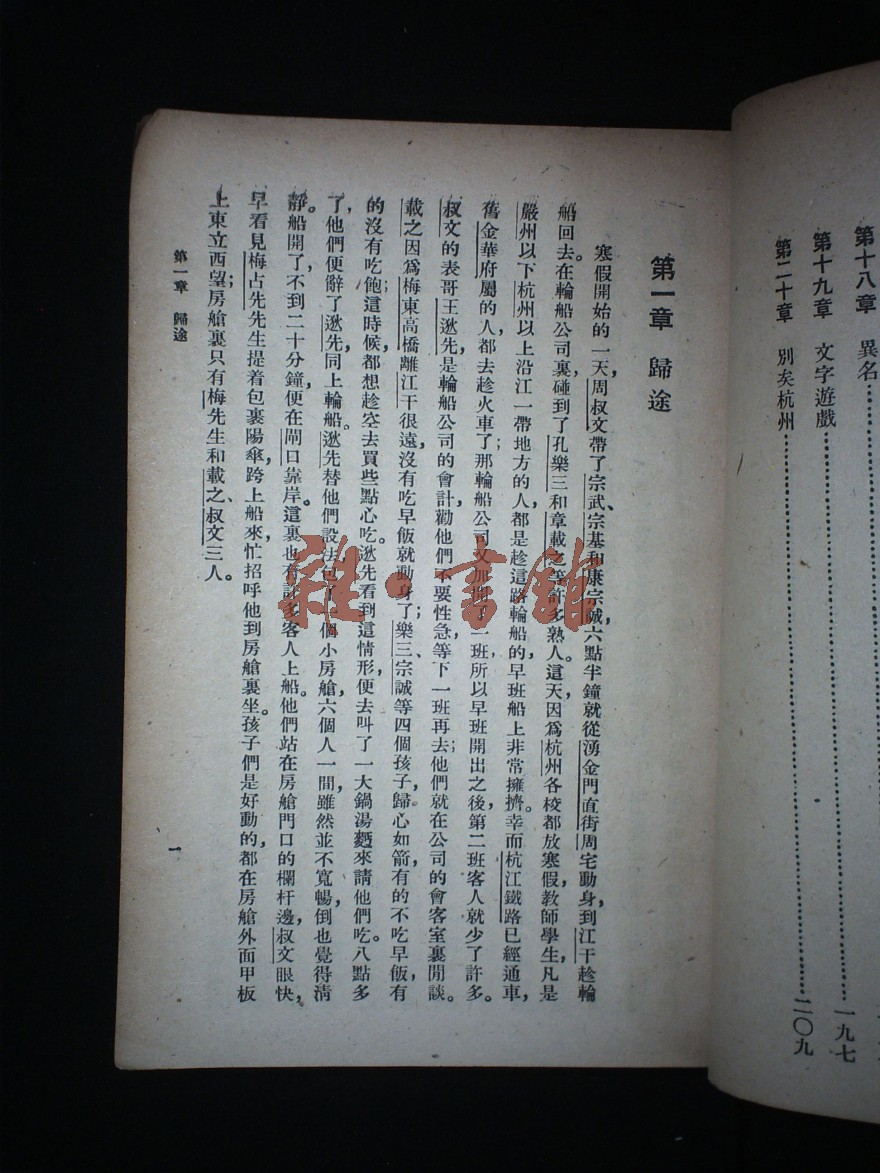 第十八章 異名
第十九章 文字遊戲 一九七
第二十章 別矣杭州 二〇九
第一章 歸途
寒假開始的一天，周叔文帶了宗武、宗基和康宗誠，六點半鐘就從湧金門直街周宅動身，到江干趁輪
船回去。在輪船公司裏，碰到了孔樂三和章載之等許多熟人。這天因爲杭州各校都放寒假，教師學生，凡是
嚴州以下，杭州以上，沿江一帶地方的人，都是趁這路輪船的，早班船上非常擁擠。幸而杭江鐵路已經通車，
舊金華府屬的人，都去趁火車了；那輪船公司又加開了一班，所以早班開出之後，第二班客人就少了許多。
叔文的表哥王逖先是輪船公司的會計，勸他們不要性急，等下一班再去；他們就在公司的會客室裏閒談。
載之因爲梅東高橋離江干很遠，沒有吃早飯就動身了；樂三、宗誠等四個孩子，歸心如箭，有的不吃早飯，有
的沒有吃飽；這時候都想趁空去買些點心吃。逖先看到這情形，便去叫了一大鍋湯麵來請他們吃。八點多
了，他們便辭了逖先，同上輪船。逖先替他們設法包了一個小房艙，六個人一間，雖然並不寬暢，倒也覺得清
靜。船開了，不到二十分鐘，便在閘口靠岸。這裏也有許多客人上船。他們站在房艙門口的欄杆邊，叔文眼快，
早看見梅占先先生提着包裹陽傘，跨上船來，忙招呼他到房艙裏坐。孩子們是好動的，都在房艙外面甲板
上東立西望；房艙裏只有梅先生和載之、叔文三人。
第一章 歸途
一
雜·書館